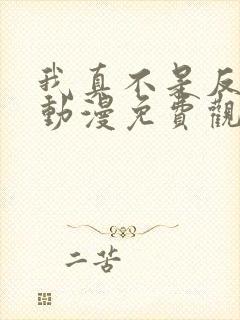 我真不是反
動漫免費觀
二苦